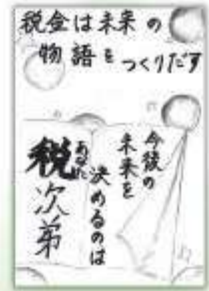 税金は未来の
物語をつくりだす
今後の
未来を
決めるのは
あなた
税
次第